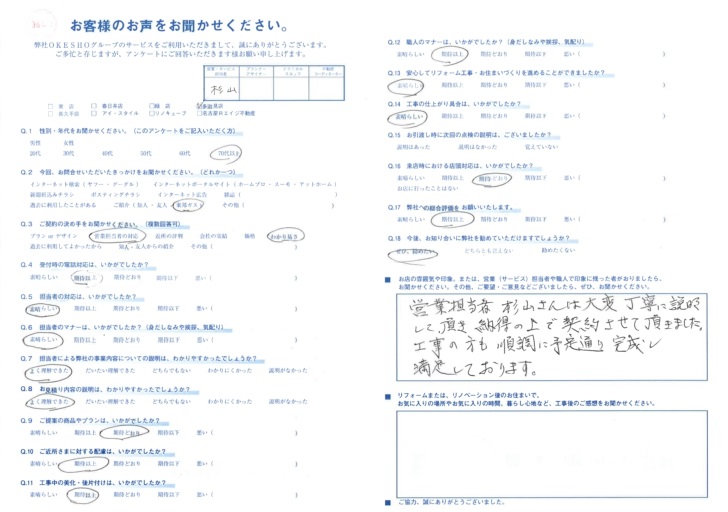 お客様のお声をお聞かせください。
弊社OKESHOグループのサービスをご利用いただきまして、誠にありがとうございます。
ご多忙と存じますが、アンケートにご回答いただきます様お願い申し上げます。
杉山
春日井店
アイ・スタイル リンキューブ 名古屋Rエイジ不動産
Q.1 性別・年代をお聞かせください。（このアンケートをご記入いただく方）
男性 女性
20代 30代 40代 50代 60代 70代以上
Q.2 今回、お問合せいただいたきっかけをお聞かせください。（どれか一つ）
インターネット検索（ヤフー・グーグル） インターネットポータルサイト（ホームプロ・スーモ・アットホーム）
新聞折込みチラシ ポスティングチラシ インターネット広告 雑誌（ ）
過去に利用したことがある ご紹介（知人・友人・東邦ガス） その他（ ）
Q.3 ご契約の決め手をお聞かせください。（複数回答可）
プラン or デザイン 営業担当者の対応 近所の評判 会社の実績 価格 わかり易さ
過去に利用してよかったから 知人・友人からの紹介 その他（ ）
Q.4 受付時の電話対応は、いかがでしたか？
素晴らしい 期待以上 期待どおり 期待以下 悪い（ ）
Q.5 担当者の対応は、いかがでしたか？
素晴らしい 期待以上 期待どおり 期待以下 悪い（ ）
Q.6 担当者のマナーは、いかがでしたか？（身だしなみや挨拶、気配り）
素晴らしい 期待以上 期待どおり 期待以下 悪い（ ）
Q.7 担当者による弊社の事業内容についての説明は、わかりやすかったでしょうか？
よく理解できた だいたい理解できた どちらでもない わかりにくかった 説明がなかった
Q.8 お見積り内容の説明は、わかりやすかったでしょうか？
よく理解できた だいたい理解できた どちらでもない わかりにくかった 説明がなかった
Q.9 ご提案の商品やプランは、いかがでしたか？
素晴らしい 期待以上 期待どおり 期待以下 悪い（ ）
Q.10 ご近所さまに対する配慮は、いかがでしたか？
素晴らしい 期待以上 期待どおり 期待以下 悪い（ ）
Q.11 工事中の美化・後片付けは、いかがでしたか？
素晴らしい 期待以上 期待どおり 期待以下 悪い（ ）
Q.12 職人のマナーは、いかがでしたか？（身だしなみや挨拶、気配り）
素晴らしい 期待以上 期待どおり 期待以下 悪い（ ）
Q.13 安心してリフォーム工事・お住まいづくりを進めることができましたか？
素晴らしい 期待以上 期待どおり 期待以下 悪い（ ）
Q.14 工事の仕上がり具合は、いかがでしたか？
素晴らしい 期待以上 期待どおり 期待以下 悪い（ ）
Q.15 お引渡し時に次回の点検の説明は、ございましたか？
説明はあった 説明はなかった 覚えていない
Q.16 来店時における店頭対応は、いかがでしたか？
素晴らしい 期待以上 期待どおり 期待以下 悪い（ ）
お店に行ったことはない
Q.17 弊社への総合評価を お願いいたします。
素晴らしい 期待以上 期待どおり 期待以下 悪い（ ）
Q.18 今後、お知り合いに弊社を勧めていただけますでしょうか？
ぜひ、勧めたい どちらとも言えない 勧めたくない
■ お店の雰囲気や印象、または、営業（サービス）担当者や職人で印象に残った者がおりましたら、
お聞かせください。その他、ご要望・ご意見などございましたら、ぜひ、お聞かせください。
営業担当者 杉山さんは大変丁寧に説明
して頂き 納得の上で契約させて頂きました。
工事の方も 順調に予定通り完成し
満足しております。
■ リフォームまたは、リノベーション後のお住まいで、
お気に入りの場所やお気に入りの時間、暮らし心地など、工事後のご感想をお聞かせください。
■ ご協力、誠にありがとうございました。